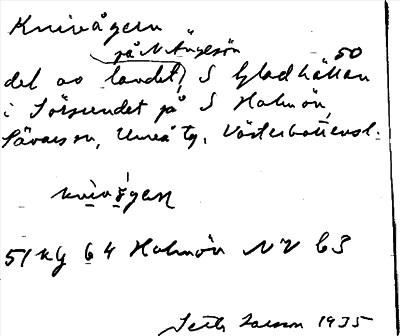 Knivågern
på N Ängesön
50
del av landet, S Gladhällan
i Sörsundet på S Holmön,
Sävars sn, Umeå tg, Västerbottensl.
knivågen
51 kg 64 Holmön NV 63
Seth Larsson 1935